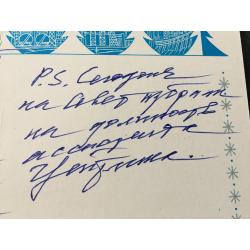 P.S. Сегодня
на Совет избрали
на должность
ассистента